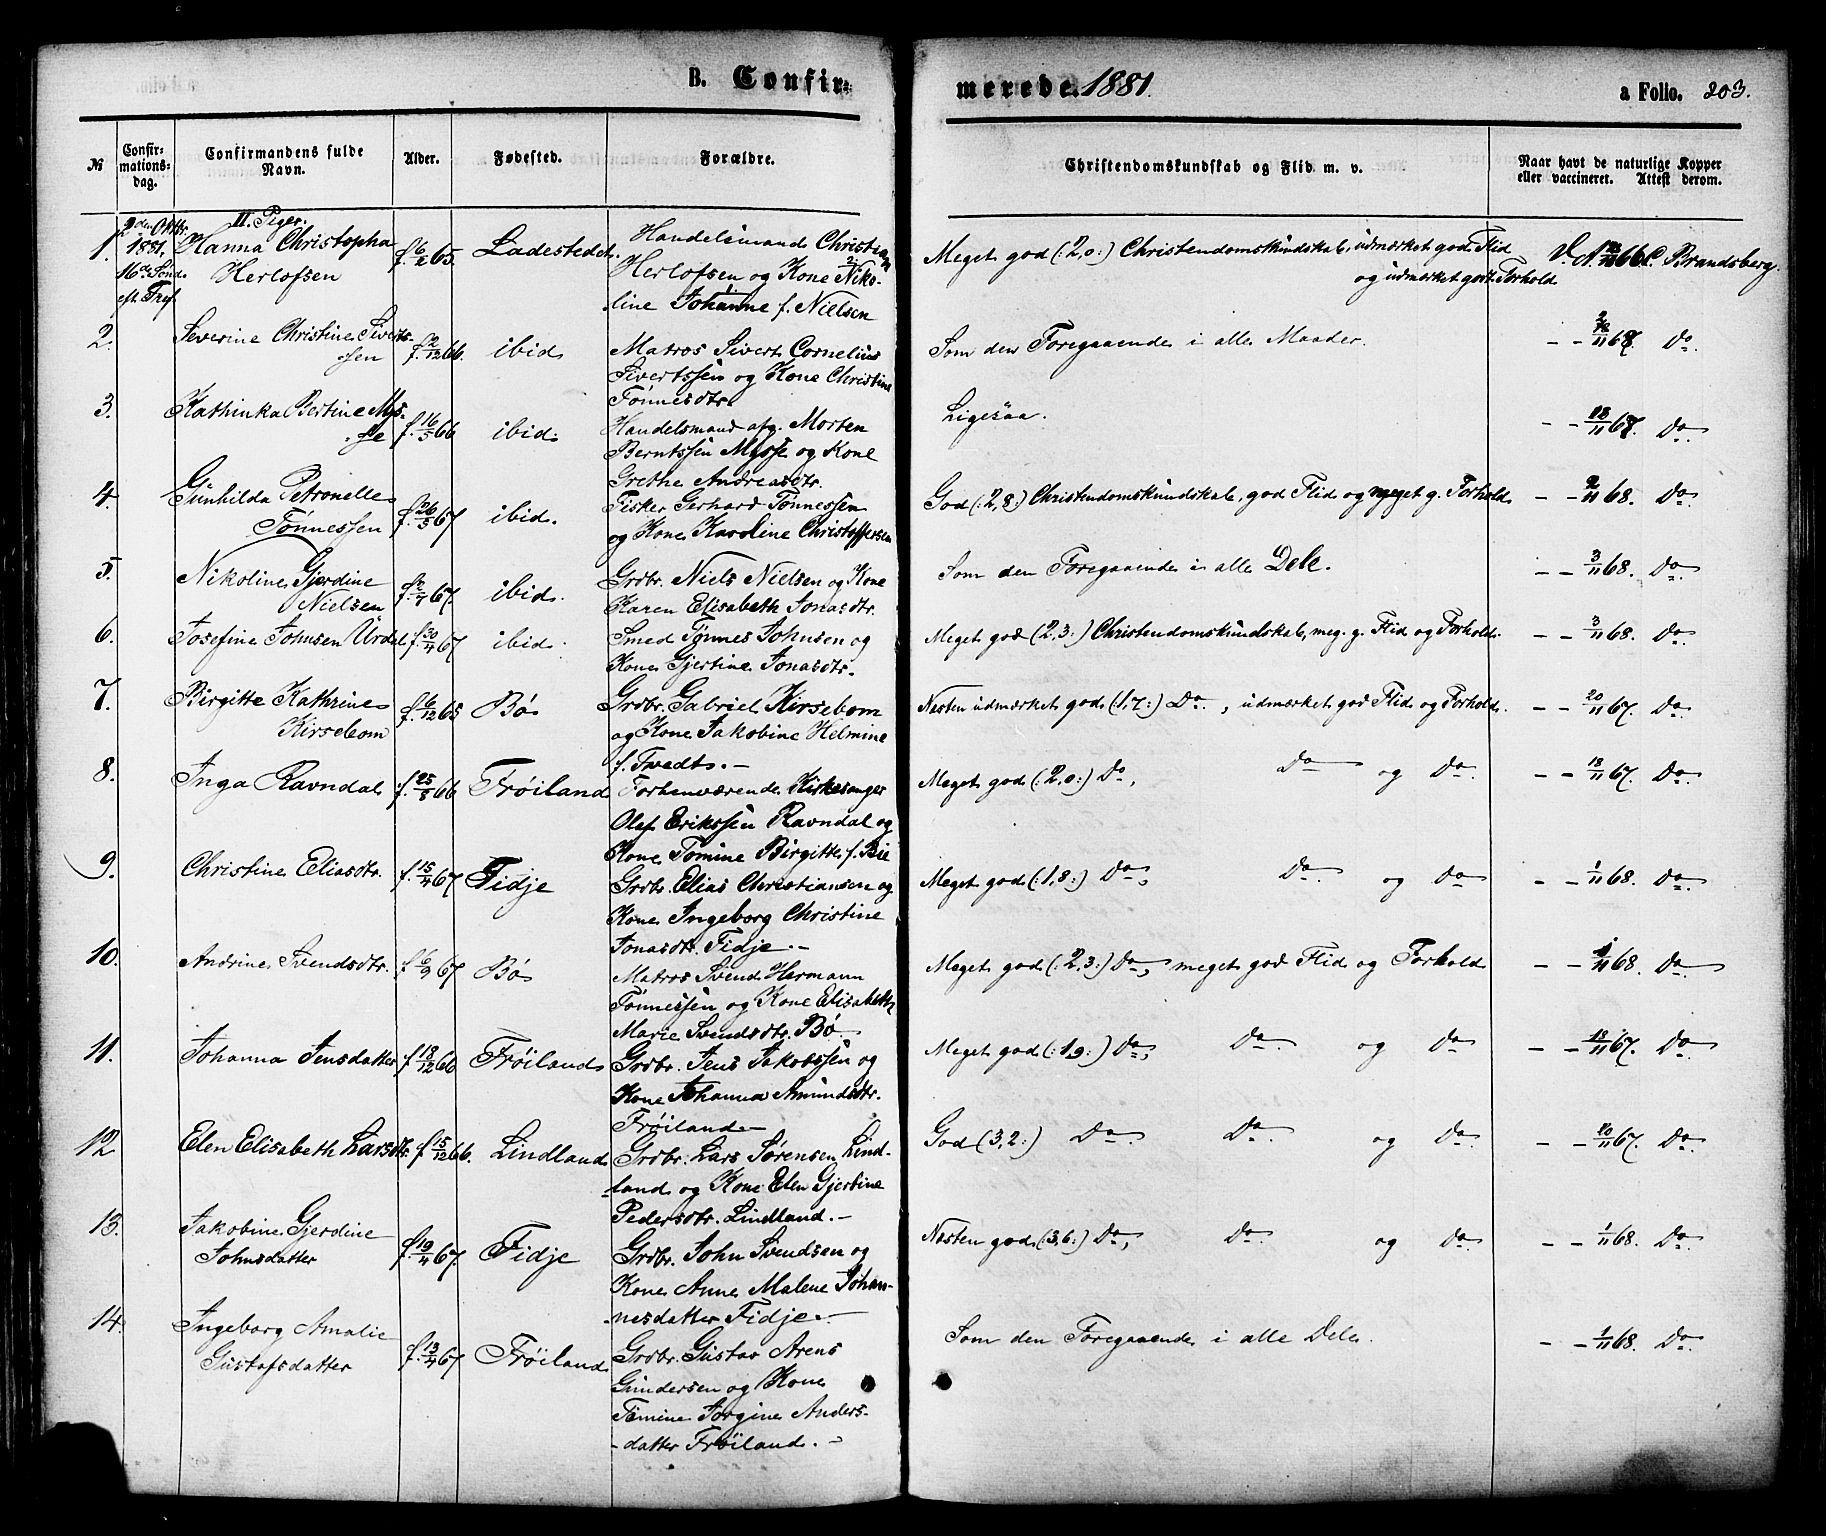 B. Confir= merede. 1881. a Folio. 203.
№ Confir- mations- dag. Confirmandens fulde Navn. Alder. Fødested. Forældre. Christendomskundskab og Flid m. v. Naar havt de naturlige Kopper eller vaccineret. Attest derom.
2den Oktbr. 1881, 16de Sønd. eft. Tref.
II. Piger.
1. Hanna Christopha Herlofsen f. 6/2 65. Ladestedet. Handelsmand Christian
Herlofsen og Kone Niko-
line Johanne f. Nielsen
Meget god (: 2,0 :) Christendomskundskab, udmærket god Flid
og udmærket godt Forhold. 66 C. Brandsberg.
2. Severine Christine Siverts-
sen f. 2/12 66. ibid Matros Sivert Cornelius
Sivertssen og Kone Christine
Tønnesdtr.
Som den Foregaaende i alle Maader. - - 2/11 67. Do.
3. Kathinka Bertine Mys-
se f. 16/5 66 ibid. Handelsmand afg. Morten
Berntssen Mysse og Kone
Grethe Andreasdtr.
Ligesaa. - - 18/11 67. Do.
4. Gunhilda Petronelle
Tønnessen f. 26/5 67 ibid. Fisker Gerhard Tønnessen
og Kone Karoline Christoffersen
God (: 2,8 :) Christendomskundskab, god Flid og meget g. Forhold - - 2/11 68. Do
5. Nikoline Gjerdine
Nielsen 67. ibid. Grdbr. Niels Nielsen og Kone
Karen Elisabeth Jonasdtr.
Som den Foregaaende i alle Dele. - - 3/11 68. Do.
6. Josefine Johnsen Urdal f. 30/4 67 ibid. Smed Tønnes Johnsen og
Kone Gjertine Jonasdtr.
Meget god (2,3 :) Christendomskundskab, meg. g. Flid og Forhold. - - 3/11 68. Do.
7. Birgitte Kathrine
Kirsebom f. 6/12 65 Bø Grdbr. Gabriel Kirsebom
og Kone Jakobine Helmine
f. Tvedt. -
Nesten udmærket god (: 1,7 :) Do., udmærket god Flid og Forhold. - - 20/11 67. Do.
8. Inga Ravndal f. 25/8 66 Frøiland Forhenværende Kirkesanger
Olaf Erikssen Ravndal og
Kone Tomine Birgitte f. Bie
Meget god (: 2,0 :) Do, Do og Do. - - 18/11 67. Do.
9. Christine Eliasdtr. f. 15/4 67 Fidje Grdbr. Elias Christiansen og
Kone Ingeborg Christine
Jonasdtr. Fidje. -
Meget god (: 1,8 :) Do, Do. og Do - - 1/11 68. Do.
10. Andrine Svendsdtr. f. 6/9 67 Bø Matros Svend Hermann
Tønnessen og Kone Elisabeth
Marie Svendsdtr. Bø
Meget god (: 2,3 :) Do, meget god Flid og Forhold - - 1/11 68. Do.
11. Johanna Jensdatter f. 18/12 66 Frøiland Grdbr. Jens Jakobssen og
Kone Johanna Amundsdtr.
Frøiland -
Meget god (: 1,9 :) Do, Do. og Do - - 18/11 67. Do
12 Elen Elisabeth Larsdtr. f. 15/12 66. Lindland Grdbr. Lars Sørensen Lind-
-land og Kone Elen Gjertine
Pedersdtr. Lindland. -
God (3,2 :) Do. Do. og Do. - - 20/11 67. Do.
13. Jakobine Gjerdine
Johnsdatter f. 19/4 67. Fidje Grdbr. John Svendsen og
Kone Anne Malene Johan-
-nesdatter Fidje. -
Nesten god (: 3,6 :) Do, Do. og Do. - - 1/11 68. Do.
14. Ingeborg Amalie
Gustafsdatter f. 13/4 67. Frøiland Grdbr. Gustav Arens
Gundersen og Kone
Tomine Jorgine Anders-
-datter Frøiland. -
Som den Foregaaende i alle Dele. - - 1/11 68. Do.